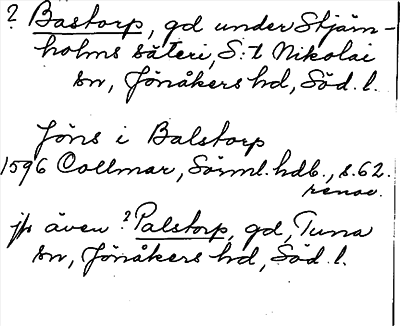 ? Bastorp, gd under Stjärn-
holms säteri, S:t Nikolai
sn, Jönåkers hd, Söd. l.
Jöns i Balstorp
1596 Collmar, Sörml. hdb., s. 62.
renov.
jfr även ? Palstorp, gd, Tuna
sn, Jönåkers hd, Söd. l.